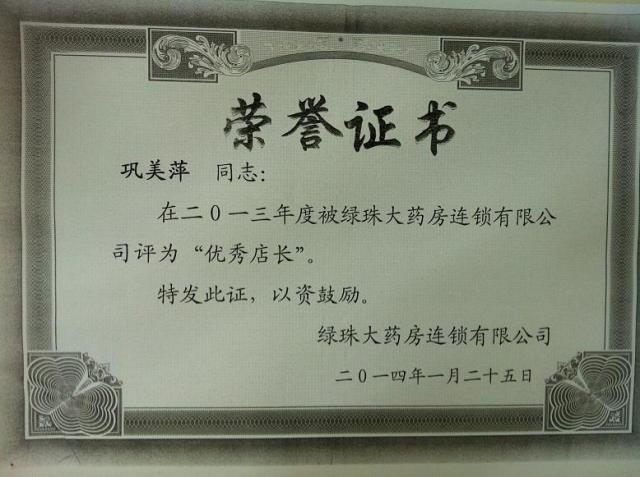 荣誉证书
巩美萍 同志：
在二〇一三年度被绿珠大药房连锁有限公
司评为“优秀店长”。
特发此证，以资鼓励。
绿珠大药房连锁有限公司
二〇一四年一月二十五日